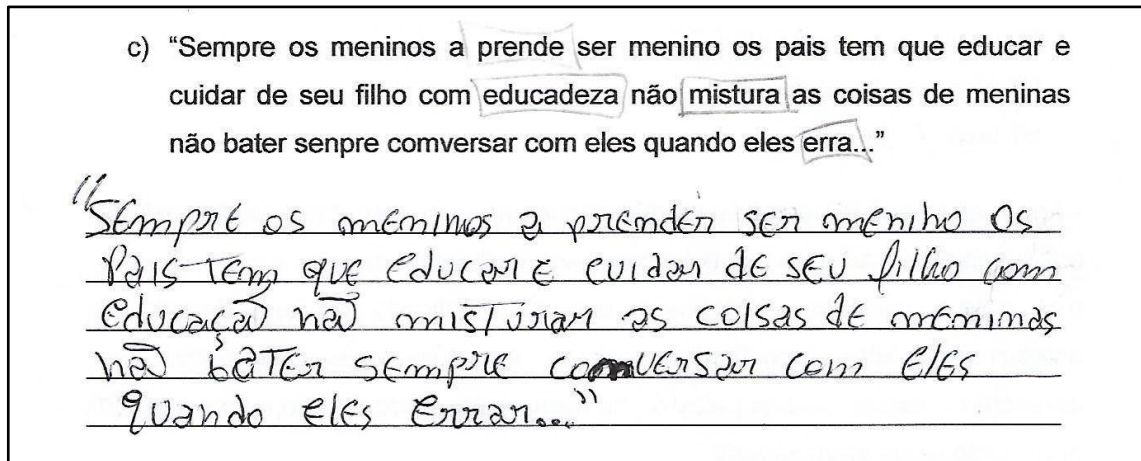 c) “Sempre os meninos a prende ser menino os pais tem que educar e
cuidar de seu filho com educadeza não mistura as coisas de meninas
não bater senpre comversar com eles quando eles erra...”
"Sempre os meninos a prender ser menino os
Pais tem que educar e cuidar de seu filho com
educação não misturar as coisas de meninas
não bater sempre comversar com eles
quando eles errar..."